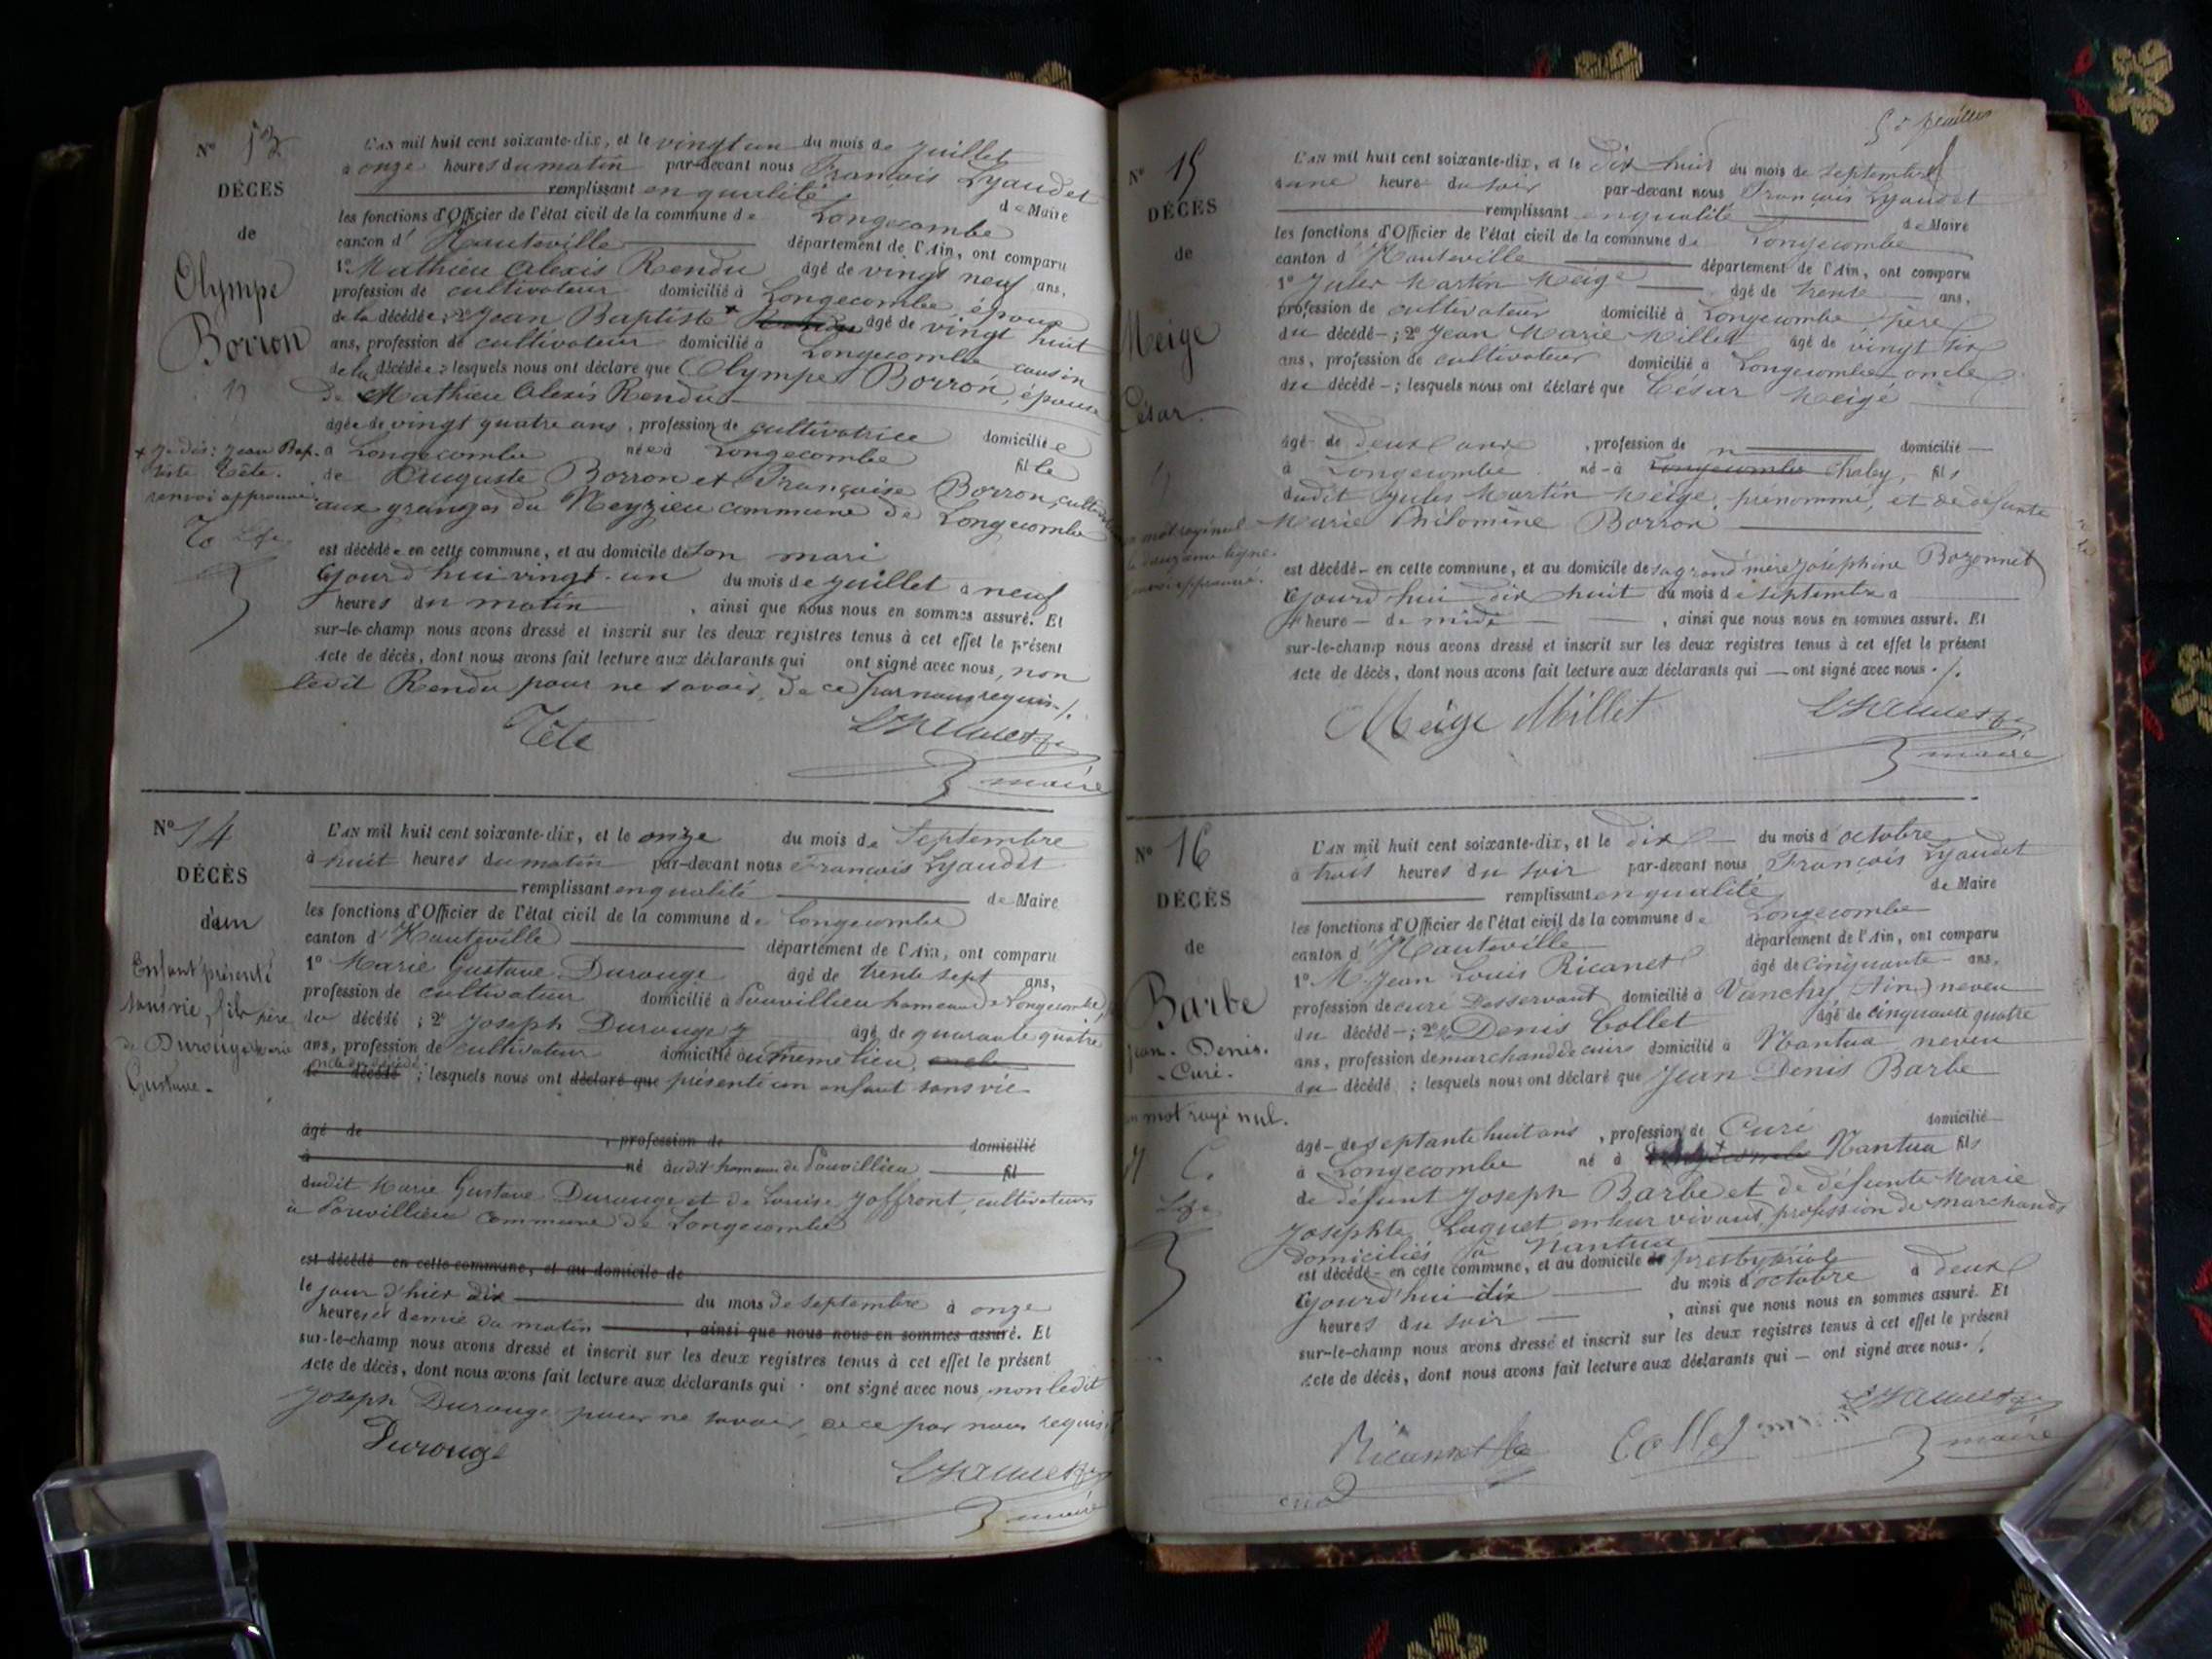 N° 13
DÉCES
de
Olympe
Borron
+ je dis: Jean Bap-
tiste Tête.
renvoi approuvé.
L'AN mil huit cent soixante-dix, et le vingt un du mois de juillet
à onze heures du matin par-devant nous François Lyaudet
remplissant en qualité de Maire
les fonctions d'Officier de l'état civil de la commune de Longecombe
canton d'Hauteville département de l'Ain, ont comparu
1° Mathieu Alexis Rendu âgé de vingt neuf ans,
profession de cultivateur domicilié à Longecombe, époux
de la décédée; 2° Jean Baptiste + âgé de vingt huit
ans, profession de cultivateur domicilié à Longecombe, cousin
de la décédée; lesquels nous ont déclaré que Olympe Borron, épouse
de Mathieu Alexis Rendu
âgée de vingt quatre ans, profession de cultivatrice domiciliée
à Longecombe née à Longecombe fille
de Auguste Borron et Françoise Borron,
aux granges du Neyzieu commune de Longecombe
est décédée en cette commune, et au domicile de son mari
cejourd'hui vingt-un du mois de juillet à neuf
heures du matin, ainsi que nous nous en sommes assuré. Et
sur-le-champ nous avons dressé et inscrit sur les deux registres tenus à cet effet le présent
Acte de décès, dont nous avons fait lecture aux déclarants qui ont signé avec nous, non
ledit Rendu pour ne savoir, de ce par nous requis./.
Tête
maire
N° 14
DÉCÈS
d'un
Enfant présenté
sans vie, fils
de Durouge Marie
Gustave.
L'AN mil huit cent soixante-dix, et le onze du mois de Septembre
à huit heures du matin par-devant nous François Lyaudet
remplissant en qualité de Maire
les fonctions d'Officier de l'état civil de la commune de Longecombe
canton d'Hauteville département de l'Ain, ont comparu
1° Marie Gustave Durouge âgé de trente sept ans,
profession de cultivateur domicilié à Pouvillieu hameau de Longecombe, père
du décédé; 2° Joseph Durouge âgé de quarante quatre
ans, profession de cultivateur domicilié au même lieu, oncle
oncle du décédé
le décédé; lesquels nous ont déclaré que présenté un enfant sans vie
âgé de , profession de domicilié
à né audit hameau de Pouvillieu fil
dudit Marie Gustave Durouge et de Louise Joffront, cultivateurs
à Pouvillieu commune de Longecombe
est décédé en cette commune, et au domicile de
le jour d'hier dix du mois de septembre à onze
heures et demie du matin, ainsi que nous nous en sommes assuré. Et
sur-le-champ nous avons dressé et inscrit sur les deux registres tenus à cet effet le présent
Acte de décès, dont nous avons fait lecture aux déclarants qui ont signé avec nous, non ledit
Joseph Durouge pour ne savoir, de ce par nous requis.
Durouge
maire
5e feuillet
N° 15
DÉCÈS
de
Meige
César
mot rayé nul
douzième ligne
approuvé.
L'AN mil huit cent soixante-dix, et le dix huit du mois de septembre
à une heure du soir par-devant nous François Lyaudet
remplissant en qualité de Maire
les fonctions d'Officier de l'état civil de la commune de Longecombe
canton d'Hauteville département de l'Ain, ont comparu
1° Jules Martin Meige âgé de trente ans,
profession de cultivateur domicilié à Longecombe, père
du décédé; 2° Jean Marie Millet âgé de vingt six
ans, profession de cultivateur domicilié à Longecombe oncle
du décédé; lesquels nous ont déclaré que César Meige
âgé de deux ans, profession de domicilié
à Longecombe né à Longecombe Chaley, fils
dudit Jules Martin Meige, prénommé, et de défunte
Marie Philomène Borron
est décédé en cette commune, et au domicile de sa grand'mère Joséphine Bozonnet
cejourd'hui dix huit du mois de septembre à
heure de midi, ainsi que nous nous en sommes assuré. Et
sur-le-champ nous avons dressé et inscrit sur les deux registres tenus à cet effet le présent
Acte de décès, dont nous avons fait lecture aux déclarants qui ont signé avec nous./.
Meige Millet
maire
N° 16
DÉCÈS
de
Barbe
Jean-Denis.
-Curé.
un mot rayé nul.
L'AN mil huit cent soixante-dix, et le dix du mois d'octobre
à trois heures du soir par-devant nous François Lyaudet
remplissant en qualité de Maire
les fonctions d'Officier de l'état civil de la commune de Longecombe
canton d'Hauteville département de l'Ain, ont comparu
1° M. Jean Louis Ricanet âgé de cinquante ans,
profession de curé desservant domicilié à Vanchy (Ain) neveu
du décédé; 2° Denis Collet âgé de cinquante quatre
ans, profession de marchand de cuirs domicilié à Nantua neveu
du décédé; lesquels nous ont déclaré que Jean Denis Barbe
âgé de septante huit ans, profession de Curé domicilié
à Longecombe né à Nantua fils
de défunt Joseph Barbe et de défunte Marie
Josephte Luquet, en leur vivant, profession de marchands
domiciliés à Nantua
est décédé en cette commune, et au domicile de presbytériale
cejourd'hui dix du mois d'octobre à deux
heures du soir, ainsi que nous nous en sommes assuré. Et
sur-le-champ nous avons dressé et inscrit sur les deux registres tenus à cet effet le présent
Acte de décès, dont nous avons fait lecture aux déclarants qui ont signé avec nous.
Collet
maire